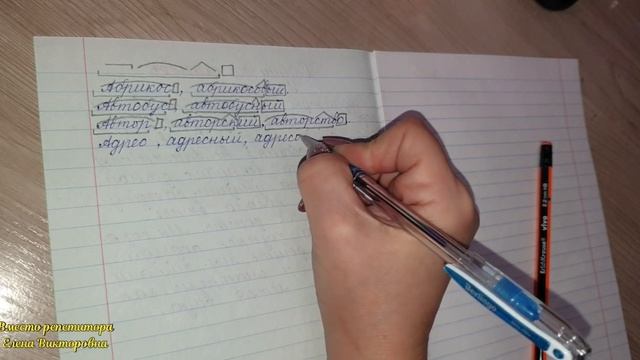 Абрикос, абрикосовый.
Автобус, автобусный
Автор, авторский, авторство.
Адрес, адресный, адресо
Вместо репетитора
Елена Викторовна